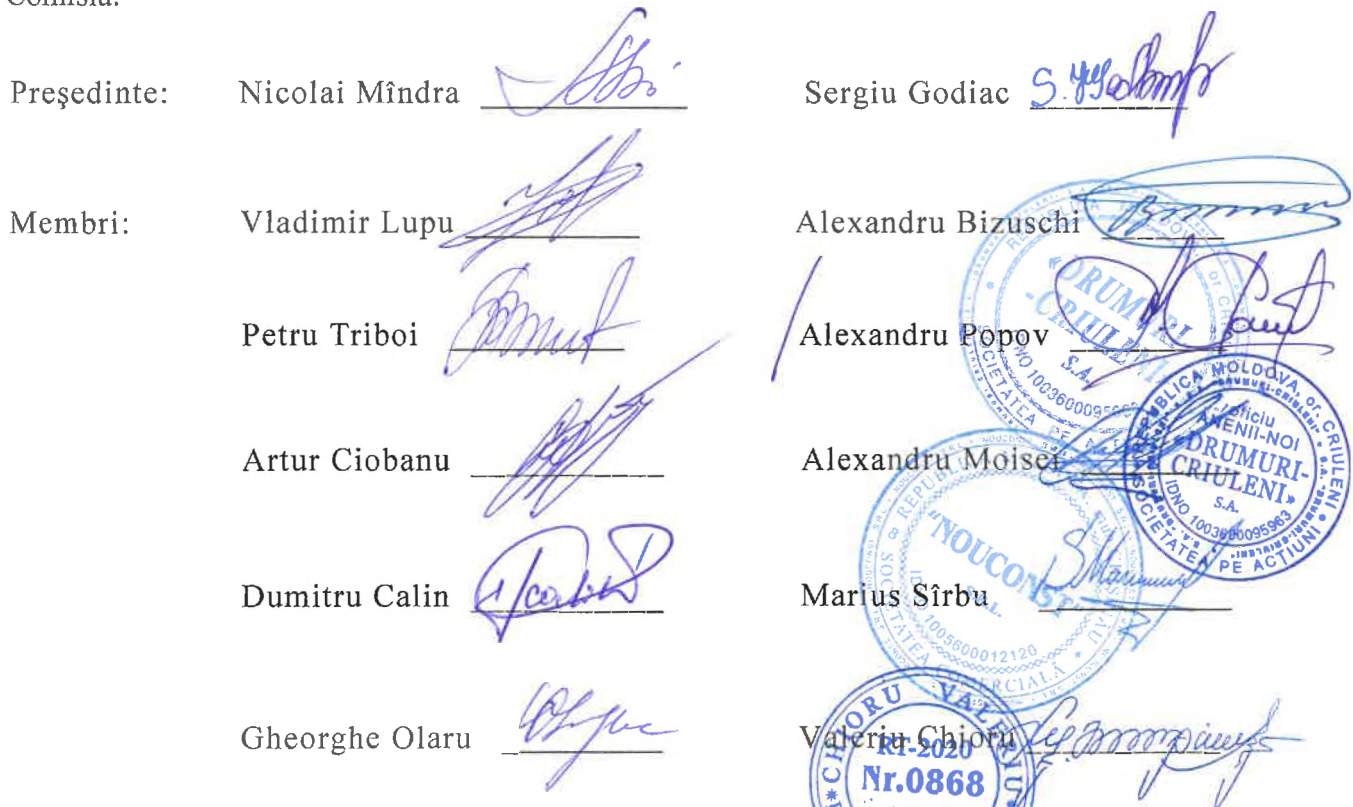 Comisia:
Preşedinte: Nicolai Mîndra Sergiu Godiac
Membri: Vladimir Lupu Alexandru Bizuschi
Petru Triboi Alexandru Popov
Artur Ciobanu Alexandru Moisei
Dumitru Calin Marius Sîrbu
Gheorghe Olaru Valeriu Chioru
«DRUMURI
-CRIULENI»
S.A.
SOCIETATEA PE
REPUBLICA MOLDOVA, or. CRIULENI
SOCIETATEA PE ACŢIUNI
IDNO 1003600095963
Oficiu
ANENII-NOI
«DRUMURI-
CRIULENI»
S.A.
"NOUCONST"
S.R.L.
1005600012120
SOCIETATEA COMERCIALĂ
CHIORU VALERIU
RT-2020
Nr.0868